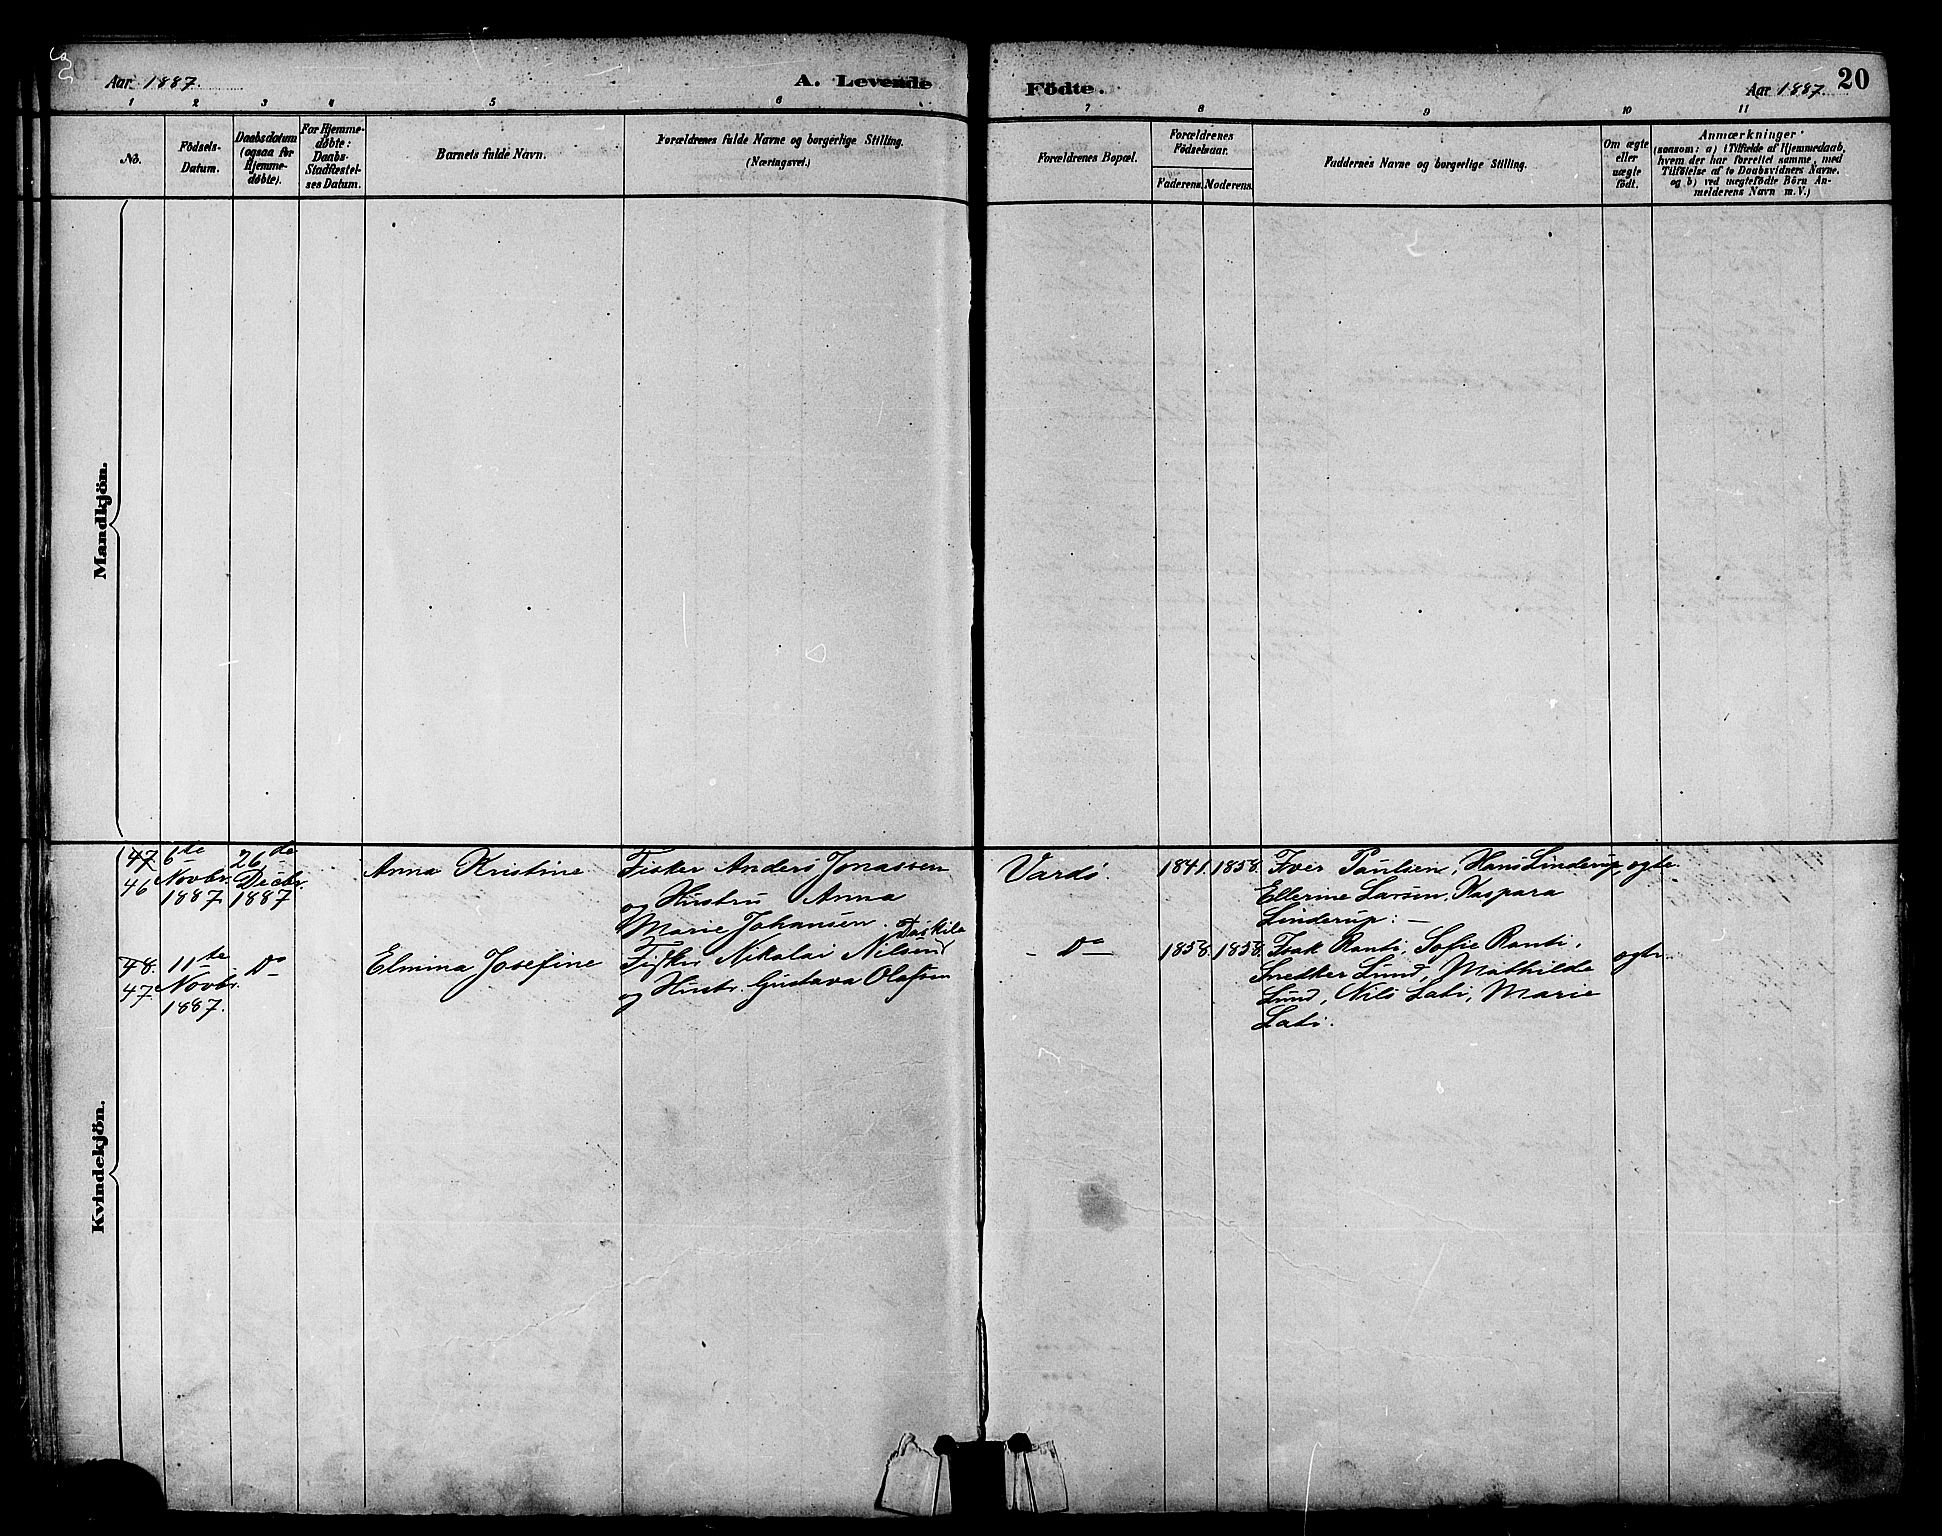 Aar 1887. A. Levende
1 2 3 4 5 6
No.
Födsels-
Datum.
Daabsdatum
(ogsaa for
Hjemme-
døbte).
For Hjemme-
døbte:
Daabs-
Stadfæstel-
ses Datum.
Barnets fulde Navn.
Forældrenes fulde Navne og borgerlige Stilling.
(Næringsvei.)
Mandkjön.
Kvindekjön.
47. 6te 26de
46 Novbr. Decbr. Anna Kristine Fisker Anders Jonassen
1887. 1887 og Hustru Anna
Marie Johansen.
Daskila
48. 11te Do Elmina Josefine Fisker Nikolai Nilsen
47. Novbr. og Hustr. Gustava Olafsen
1887.
Födte. Aar 1887. 20
7 8 9 10 11
Forældrenes Bopæl.
Forældrenes
Födselsaar.
Faderens. Moderens.
Faddernes Navne og borgerlige Stilling.
Om ægte
eller
uægte
födt.
Anmærkninger
(saasom: a) i Tilfælde af Hjemmedaab,
hvem der har forrettet samme, med
Tilföielse af to Daabsvidners Navne,
og b) ved uægtefödte Börn An-
melderens Navn m. V.)
Vardö. 1841. 1858. Iver Paulsen, Hans Linderup, ægte.
Ellerine Larsen, Kaspara
Linderup. –
– Do – 1858. 1858. Isak Ranti, Sofie Ranti, ægte.
Snedker Lund, Mathilde
Lund, Nils Lati, Marie
Lati.